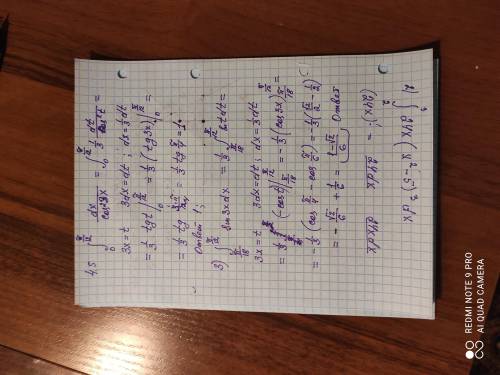 4,5 ∫₀^(π/12) dx/cos²3x = ∫₀^(π/12) 1/3 dt/cos²t =
3x = t 3dx = dt; dx = 1/3 dt
= 1/3 tg t |₀^(π/12) = 1/3 (tg 3x) |₀^(π/12) =
= 1/3 tg = 1/3 tg π/4 = 1
Ответ 1;
3) ∫_(π/18)^(π/12) sin 3x dx = 1/3 ∫_(π/18)^(π/12) sin t dt =
3x = t 3dx = dt; dx = 1/3 dt
= 1/3 (-cos t) |_(π/18)^(π/12) = -1/3 (cos 3x) |_(π/18)^(π/12) =
= -1/3 (cos π/4 - cos π/6) = -1/3 (√2/2 - 1/2)
= -√2/6 + 1/6 = (1-√2)/6 Ответ
2) ∫₂³ 24x (x²-5)³ dx
(24x)' = 24dx 24xdx
REDMI NOTE 9 PRO
AI QUAD CAMERA